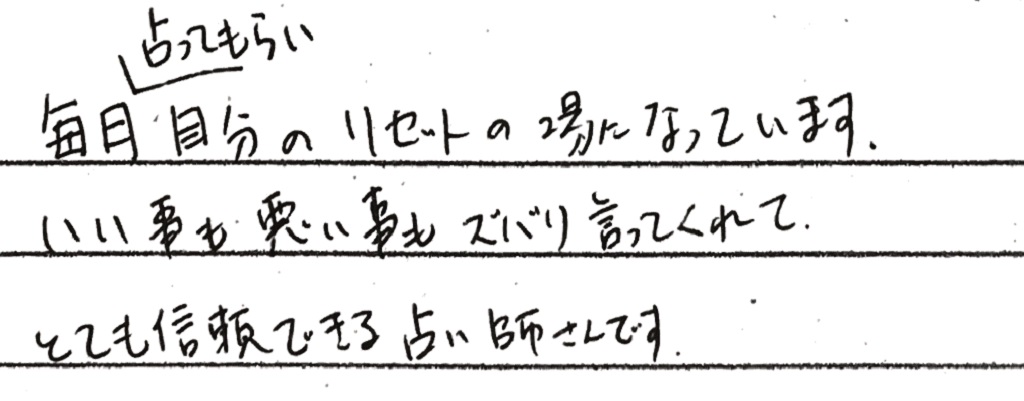 占ってもらい
毎月自分のリセットの場になっています.
いい事も悪い事もズバリ言ってくれて.
とても信頼できる占い師さんです.